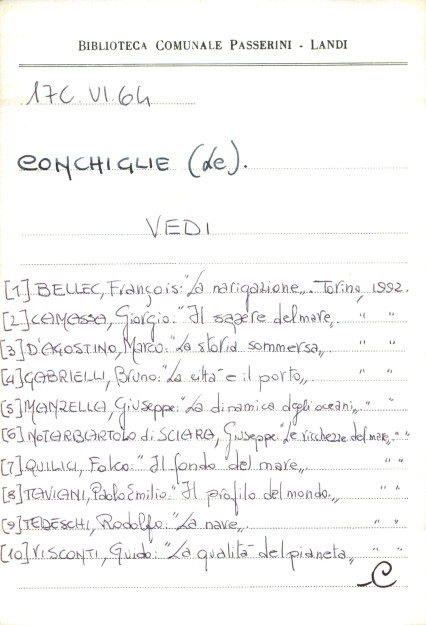 BIBLIOTECA COMUNALE PASSERINI - LANDI
17C. VI. 64
CONCHIGLIE (Le).
VEDI
[1] BELLEC, François: "La navigazione„. Torino, 1992.
[2] CAMASSA, Giorgio: "Il sapere del mare„ " "
[3] D'AGOSTINO, Marco: "La storia sommersa„ " "
[4] GABRIELLI, Bruno: "La città e il porto„ " "
[5] MANZELLA, Giuseppe: "La dinamica degli oceani„ " "
[6] NOTARBARTOLO di SCIARA, Giuseppe: "Le ricchezze del mare„ " "
[7] QUILICI, Folco: "Il fondo del mare„. " "
[8] TAVIANI, Paolo Emilio: "Il profilo del mondo„ " "
[9] TEDESCHI, Rodolfo: "La nave„. " "
[10] VISCONTI, Guido: "La qualità del pianeta„ " "